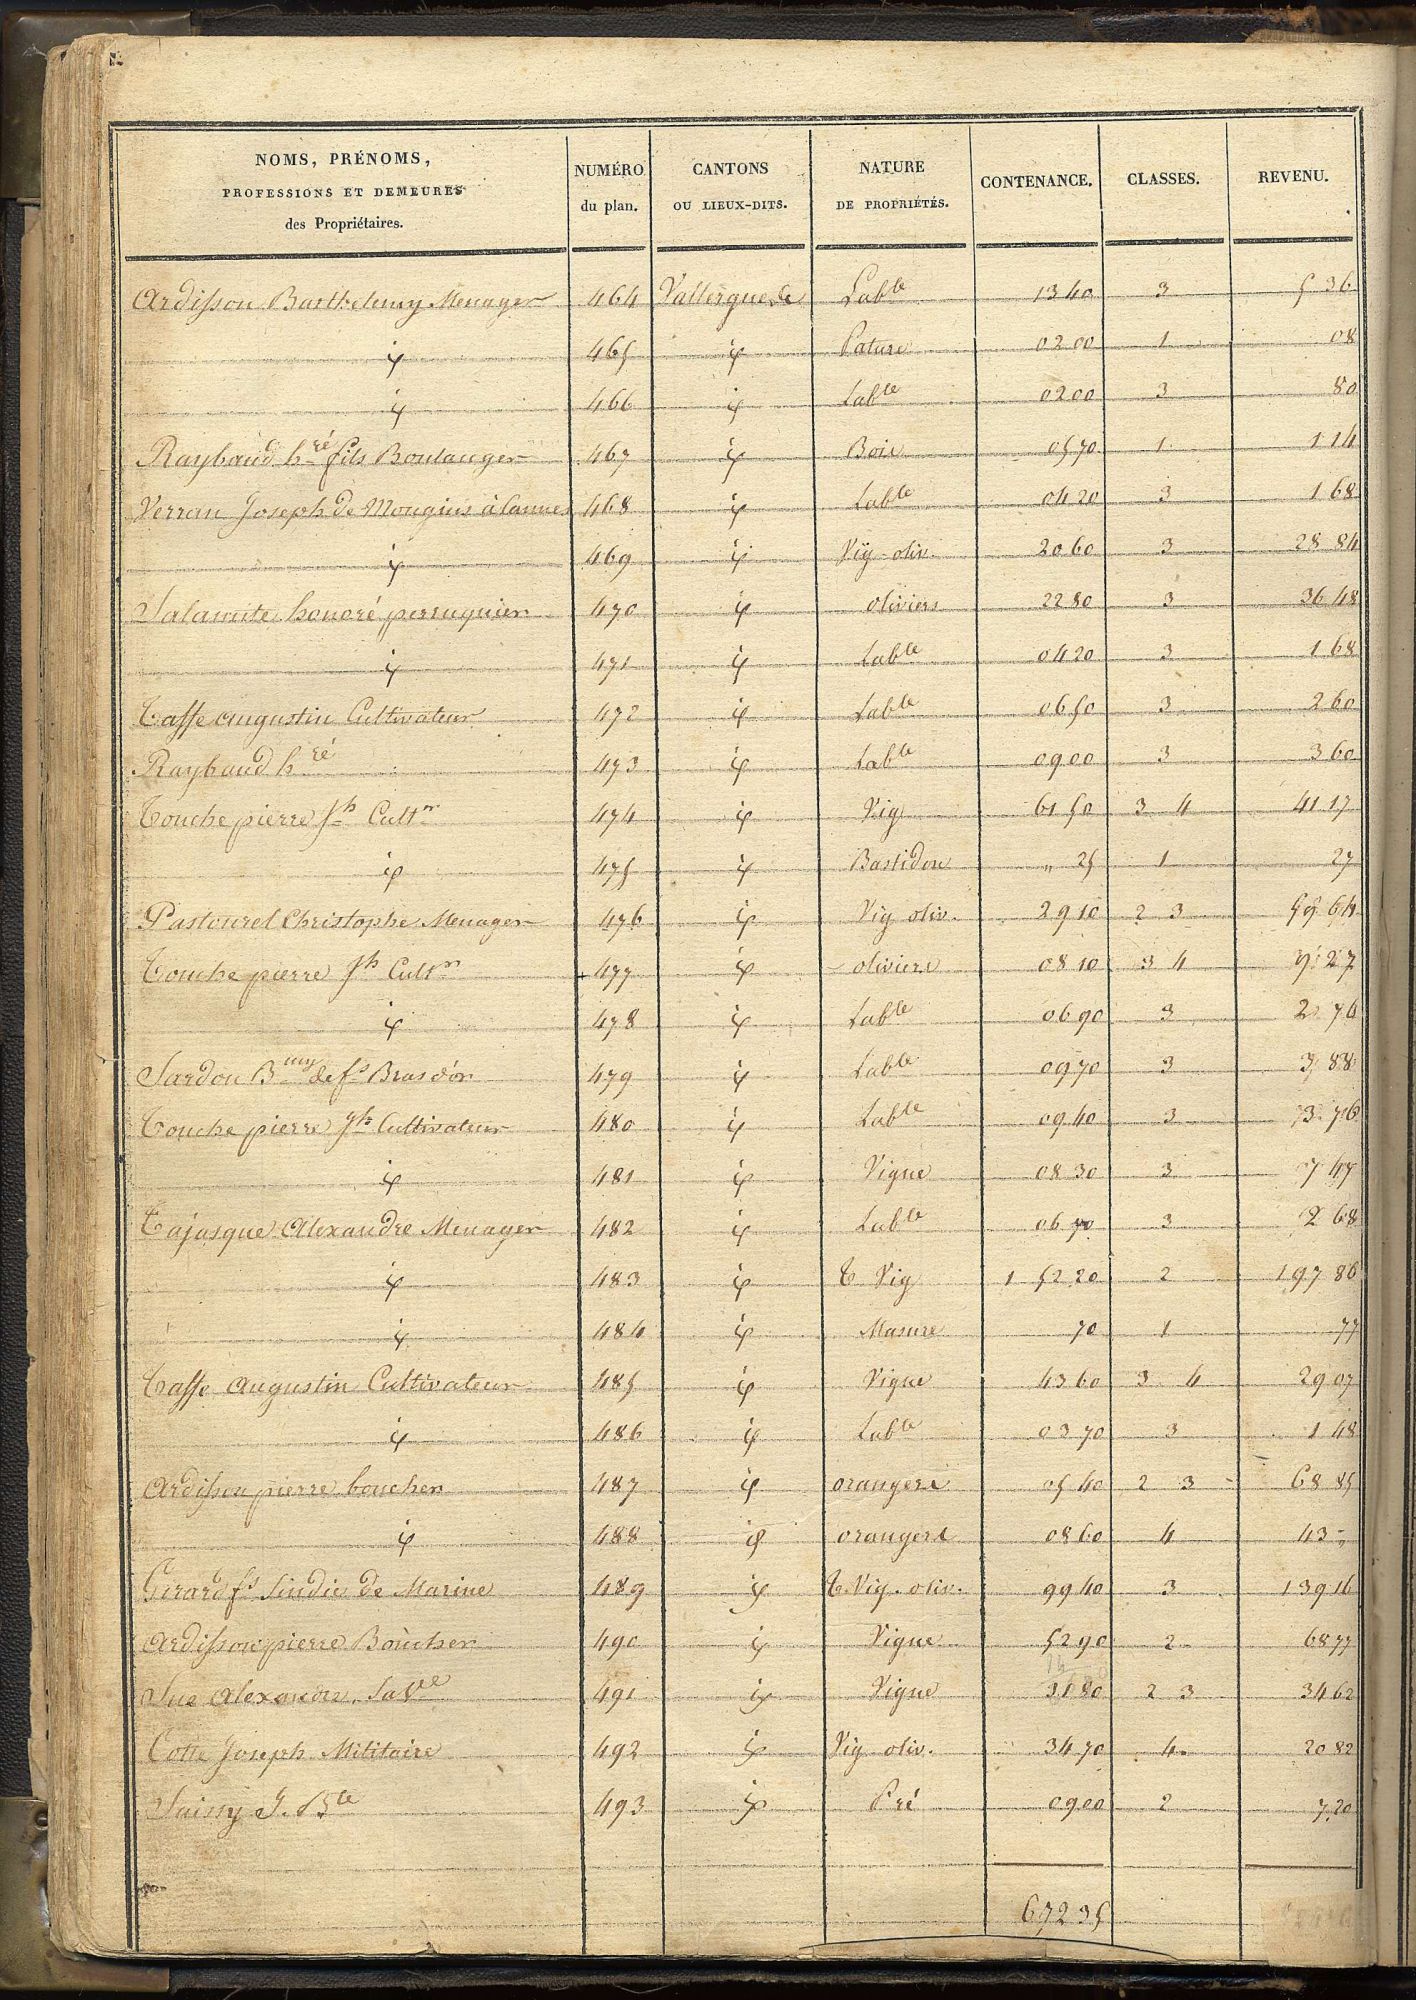 NOMS, PRÉNOMS, PROFESSIONS ET DEMEURES des Propriétaires. NUMÉRO du plan. CANTONS OU LIEUX-DITS. NATURE DE PROPRIÉTÉS. CONTENANCE. CLASSES. REVENU.
Ardisson Barthelemy Menager 464 Lable 13 40 3 5 36
id 465 id Pature 02 00 1 08
id 466 id Lable 02 00 3 80
Raybaud hré fils Boulanger 467 id Bois 05 70 1 1 14
Verran Joseph de Mougins à Cannes 468 id Lable 04 20 3 1 68
id 469 id Vig oliv. 20 60 3 28 84
honoré perruquier 470 id oliviers 22 80 3 36 48
id 471 id Lable 04 20 3 1 68
Tasse augustin Cultivateur 472 id Lable 06 50 3 2 60
Raybaud hré 473 id Lable 09 00 3 3 60
Touche pierre Jh Cultr 474 id Vig 61 50 3 4 41 17
id 475 id Bastidon " 25 1 27
Pastourel Christophe Menager 476 id Vig oliv. 29 10 2 3 64
Touche pierre Jh Cultr 477 id oliviers 08 10 3 4 9 27
id 478 id Lable 06 90 3 2 76
Sardou Bmy de fs Brasd'or 479 id Lable 09 70 3 3 88
Touche pierre Jh Cultivateur 480 id Lable 09 40 3 3 76
id 481 id Vigne 08 30 3 7 47
Tajasque Alexandre Menager 482 id Lable 06 70 3 2 68
id 483 id T Vig 1 52 20 2 197 86
id 484 id Masure 70 1 77
Tasse Augustin Cultivateur 485 id Vigne 43 60 3 4 29 07
id 486 id Lable 03 70 3 1 48
Ardisson pierre boucher 487 id orangers 05 40 2 3 68 85
id 488 id orangers 08 60 4 43 -
Girard fs Sindic de Marine 489 id T. Vig. oliv. 99 40 3 139 16
Ardisson pierre Boucher 490 id Vigne 52 90 2 68 77
Sue Alexandre 491 id Vigne 80 2 3 34 62
Cotte Joseph Militaire 492 id Vig oliv. 34 70 4 20 82
Saissy J. Bte 493 id Pré 09 00 2 7,20
6 72 35